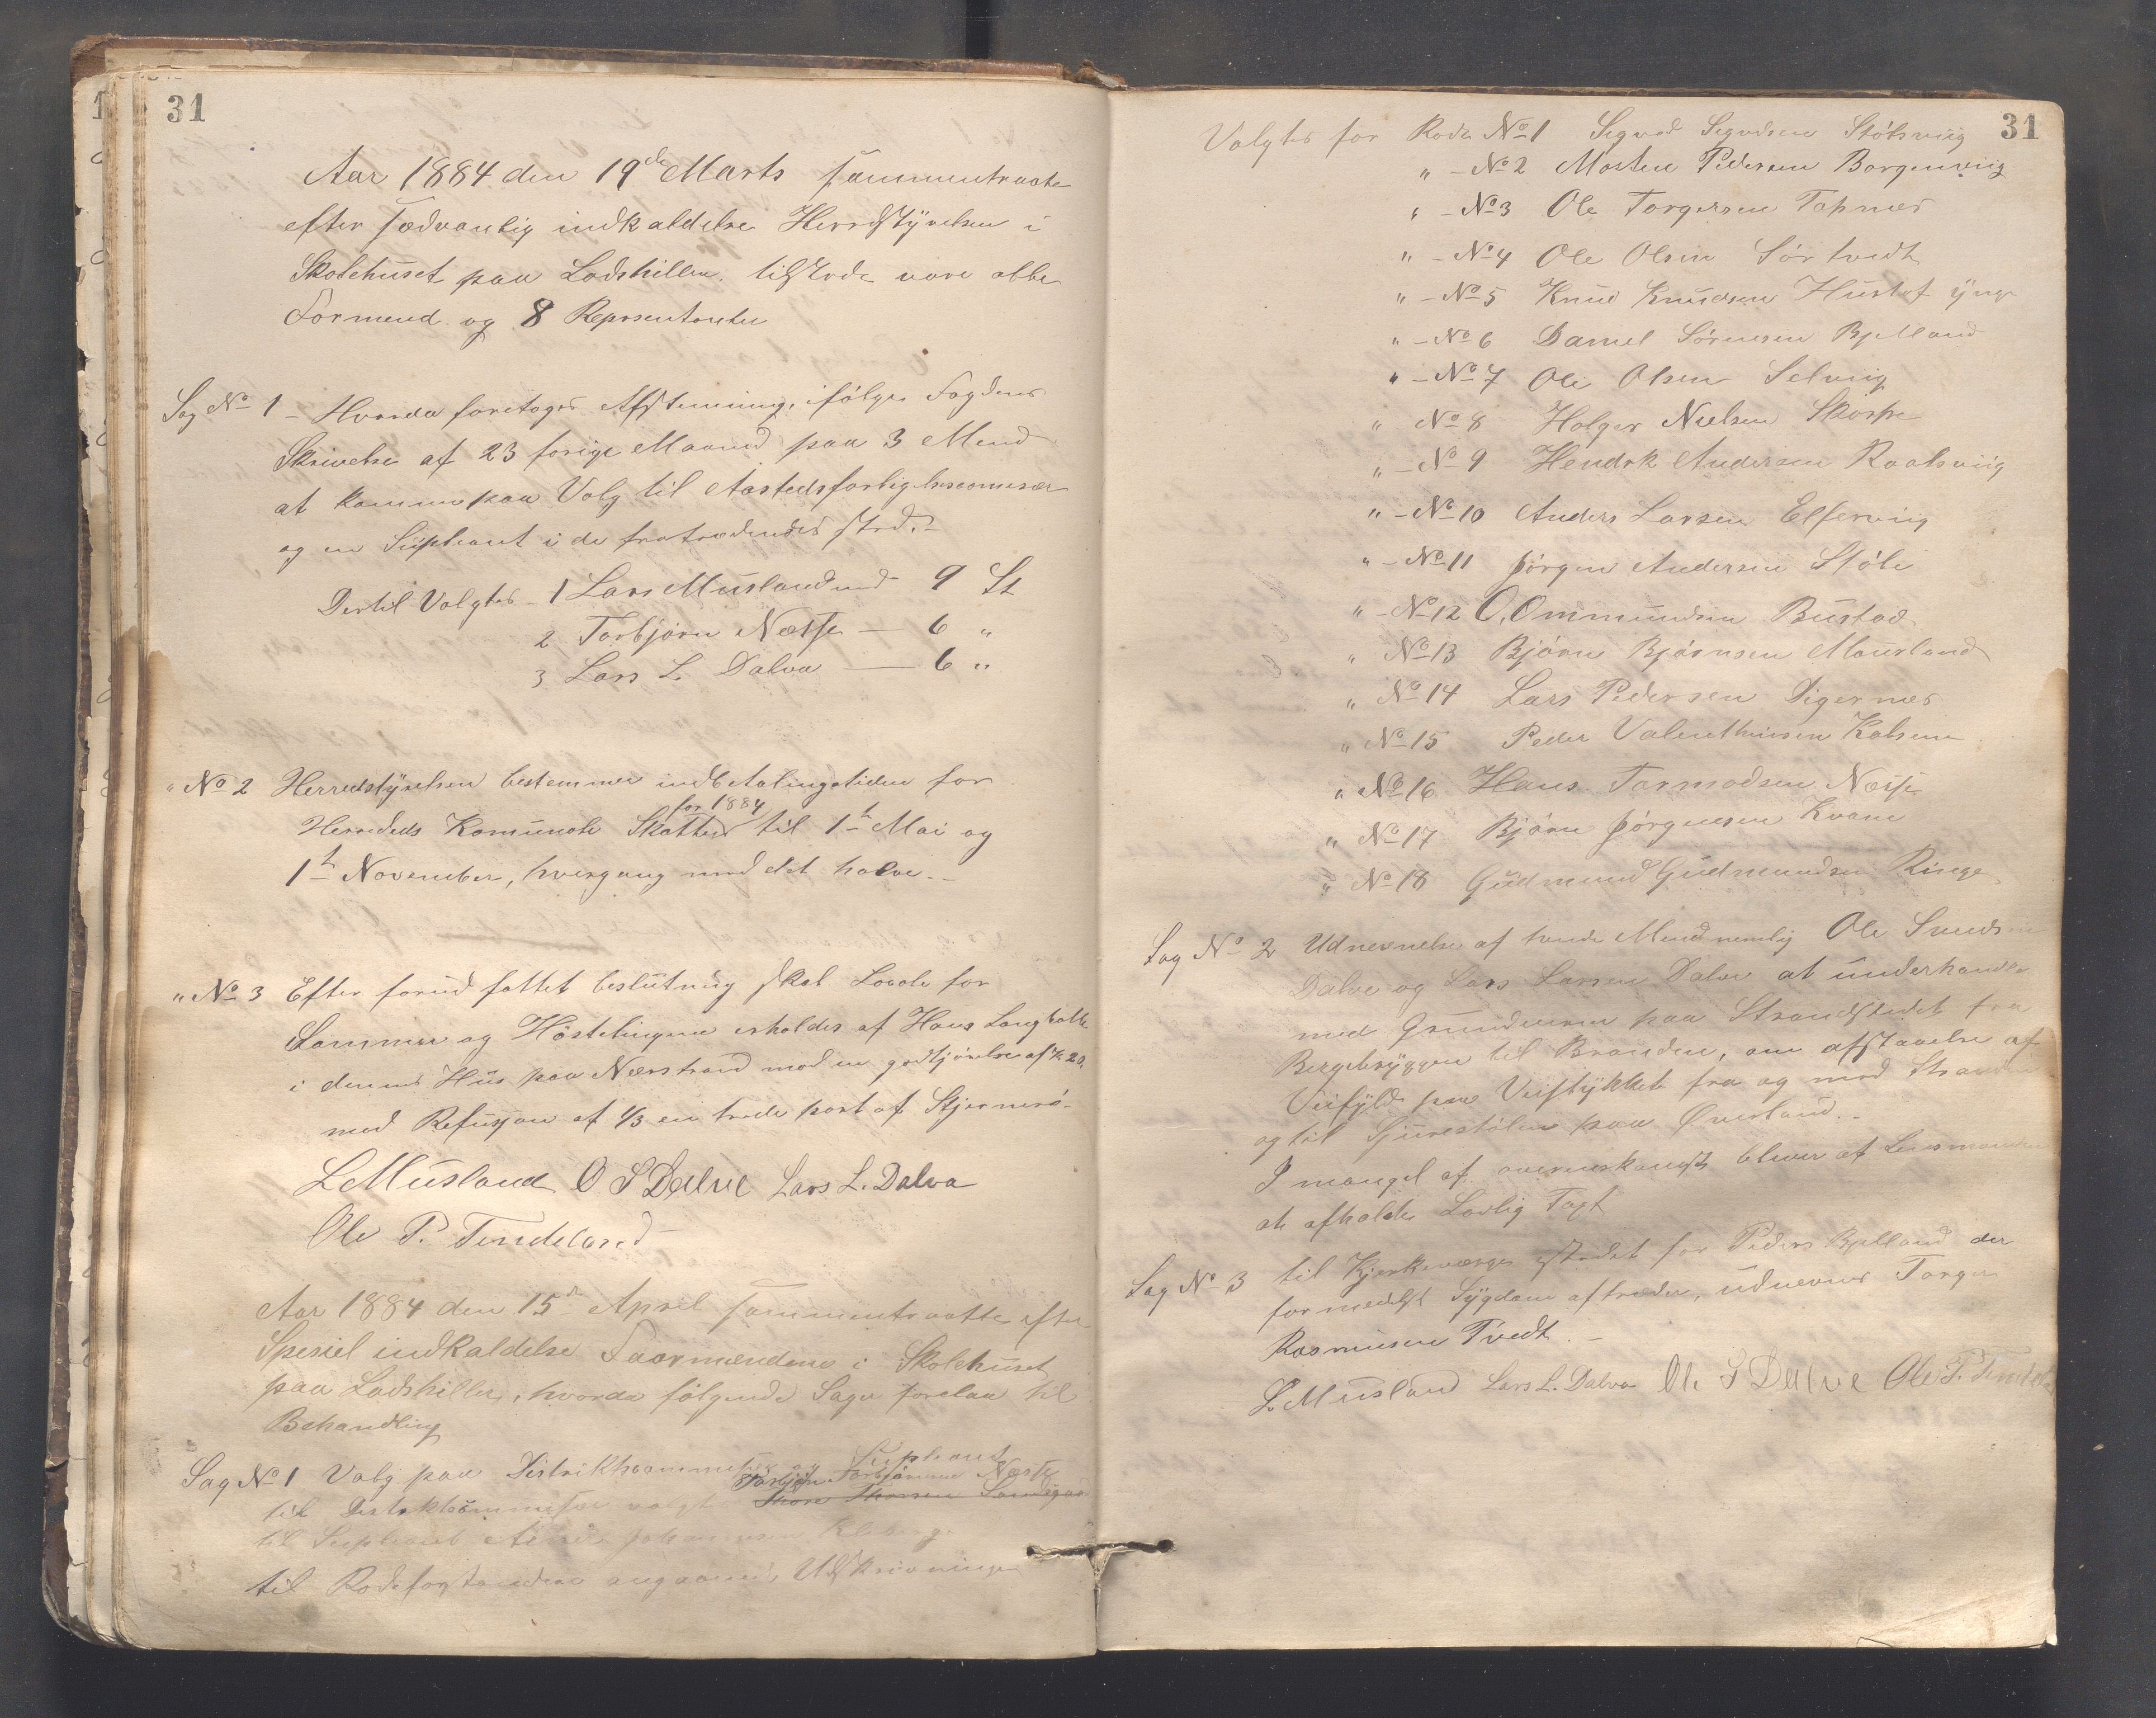 31
Aar 1884 den 19de Marts sammentraate
efter sædvanlig indkaldelse Herredstyrelsen i
Skolehuset paa Lodshillen. tilstede vare alle
Formend og 8 Representanter
Sag No 1 - Hvorda foretoges Afstemning, ifølge Fogdens
Skrivelse af 23 forige Maaned paa 3 Mend
at komme paa Valg til Aastedsforligelsescomesær
og en Supleant i de fratrædendes sted.-
Dertil Valgtes - 1 Lars Musland med 9 St
2 Torbjørn Næsse — 6 "
3 Lars L. Dalva — 6 "
" No 2 Herredstyrelsen bestemmer indbetalingstiden for
for 1884
Herredets Komunale Skatter til 1te Mai og
1te November, hvergang med det halve.-
" No 3 Efter forud fattet beslutning skal Locale for
Sommer og Høstetingene erholdes af Hans
i dennes Hus paa Nærstrand mod en godtjørelse af K 20,
med Refusjon af 1/3 en trede part af Stjernerø-
L Musland O S Dalve Lars L. Dalva
Ole P. Tendeland
Aar 1884 den 15de April sammentraatte efter
Spesiel indkaldelse Foormændene i Skolehuset
paa Lodshillen, hvorda følgende Sager forelaa til
Behandling
Sag No 1 Valg paa Distriktscommesær og Supleant
Torbjørn Torbjørnsen Næsse
til Distriktscommesær valgt
til Supleant
til Rodefogtendere angaaende Udskrivninge
31
Valgtes for Rode No 1 Sigvad Sigvadsen Stølsviig
" - No 2 Mosten Pedersen Borgenviig
" - No 3 Ole Torgersen Topnes
" - No 4 Ole Olsen Sørtvedt
" - No 5 Knud Knudsen Hustof yngr
" - No 6 Daniel Sørensen Bjelland
" - No 7 Ole Olsen Selviig
" No 8 Holger Nielsen Skorpe
" - No 9 Hendrk Andersen Raalsviig
" - No 10 Anders Larsen Elferviig
" - No 11 Jørgen Andersen Støle
" - No 12 O, Ommundsen Bustad
" No 13 Bjørn Bjørnsen Mousland
" No 14 Lars Pedersen Digernes
" No 15 Peder Valenthinsen Kalsem
" No 16 Hans Tormodsen Næsse
" No 17 Bjørn Jørgensen Kvame
" No 18 Gudmund Gudmundsen Ringe
Sag No 2 Udnevnelse af tvende Mend nemlig Ole Svendsen
Dalve og Lars Larsen Dalva at underhandle
med Grundeierne paa Strandstedet fra
Bergebryggen til Branden, om afstaaelse af
Veifyld paa Veistykket fra og med Stranden
og til Sjurestølen paa Øverland.-
I mangel af overenskomst bliver af Lensmanden
at afholde Lovlig Taxt
Sag No 3 til Kjerkeverge istedet for Peders Bjelland der
formedelst Sygdom aftræder, udnevnes Torger
Rasmusen Tvedt. -
L. Musland Lars L. Dalva Ole S Dalve Ole P. Tendeland